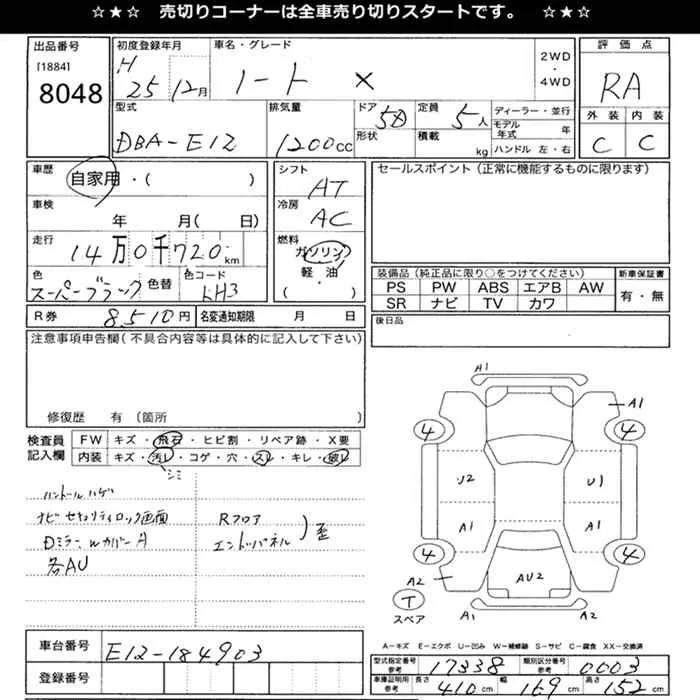 ☆ ★ ☆ 売切りコーナーは全車売り切りスタートです。 ☆ ★ ☆
出品番号
[1884]
8048
初度登録年月
H
25 12月
車名・グレード
ノート X
2WD
・
4WD
評価点
RA
外装 内装
C C
型式
DBA-E12
排気量
1200cc
ドア 5D
形状
定員 5人
積載 kg
ディーラー・並行
モデル年式 年
ハンドル 左・右
車歴
自家用・( )
車検
年 月( 日)
走行
14万0千720km
色
スーパーブラック 色替
色コード
KH3
シフト
AT
冷房
AC
燃料
ガソリン
軽・油
( ・ )
R券 8510円 名変通知期限 月 日
セールスポイント(正常に機能するものに限ります)
装備品(純正品に限り○をつけてください)
PS PW ABS エアB AW
SR ナビ TV カワ
新車保証書
有・無
後日品
注意事項申告欄(不具合内容等は具体的に記入して下さい)
修復歴 有(箇所 )
検査員記入欄
FW キズ・飛石・ヒビ割・リペア跡・X要
内装 キズ・汚レ・コゲ・穴・スレ・キレ・破レ
シミ
ハンドルハゲ
ナビセキュリティロック画面
DミラーwカバーA
各AU
Rフロア
エンドパネル
)歪
A1
A1
4
4
U2
U1
A1
A1
4
4
A2
AU2
T
スペア
A1
A2
A-キズ E-エクボ U-凹み W-補修跡 S-サビ C-腐食 XX-交換済
車台番号 E12-184903
登録番号
型式指定番号 参考 17338
類別区分番号 参考 0003
車庫証明用 参考 長さ 410cm 幅 169cm 高さ 152cm